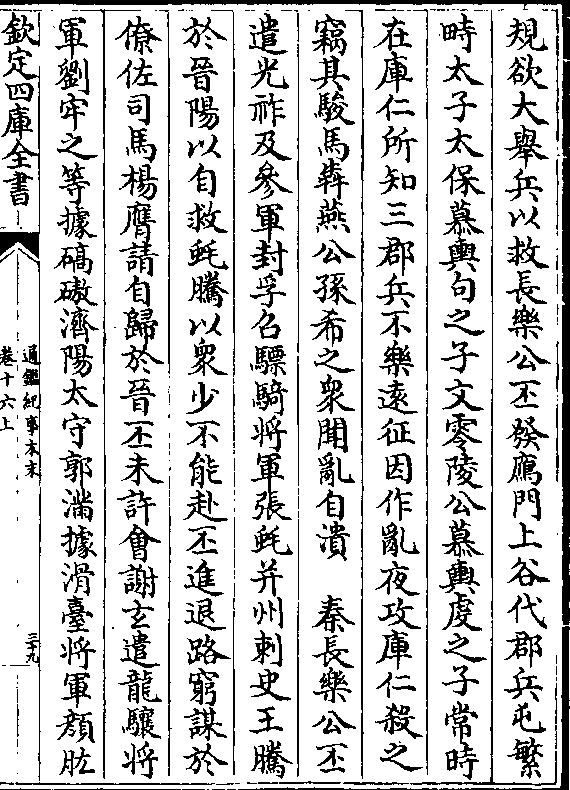 規欲大舉兵以救長樂公丕發鴈門上谷代郡兵屯繁
時太子太保慕輿句之子文零陵公慕輿虔之子常時
在庫仁所知三郡兵不樂遠征因作亂夜攻庫仁殺之
竊其駿馬奔燕公孫希之衆聞亂自潰　秦長樂公丕
遣光祚及參軍封孚召驃騎將軍張蚝并州刺史王騰
於晉陽以自救蚝騰以衆少不能赴丕進退路窮謀於
僚佐司馬楊膺請自歸於晉丕未許會謝玄遣龍驤將
軍劉牢之等據碻磝濟陽太守郭滿據滑臺將軍顔肱
欽定四庫全書
通鑑紀事本末
卷十六上
三十九